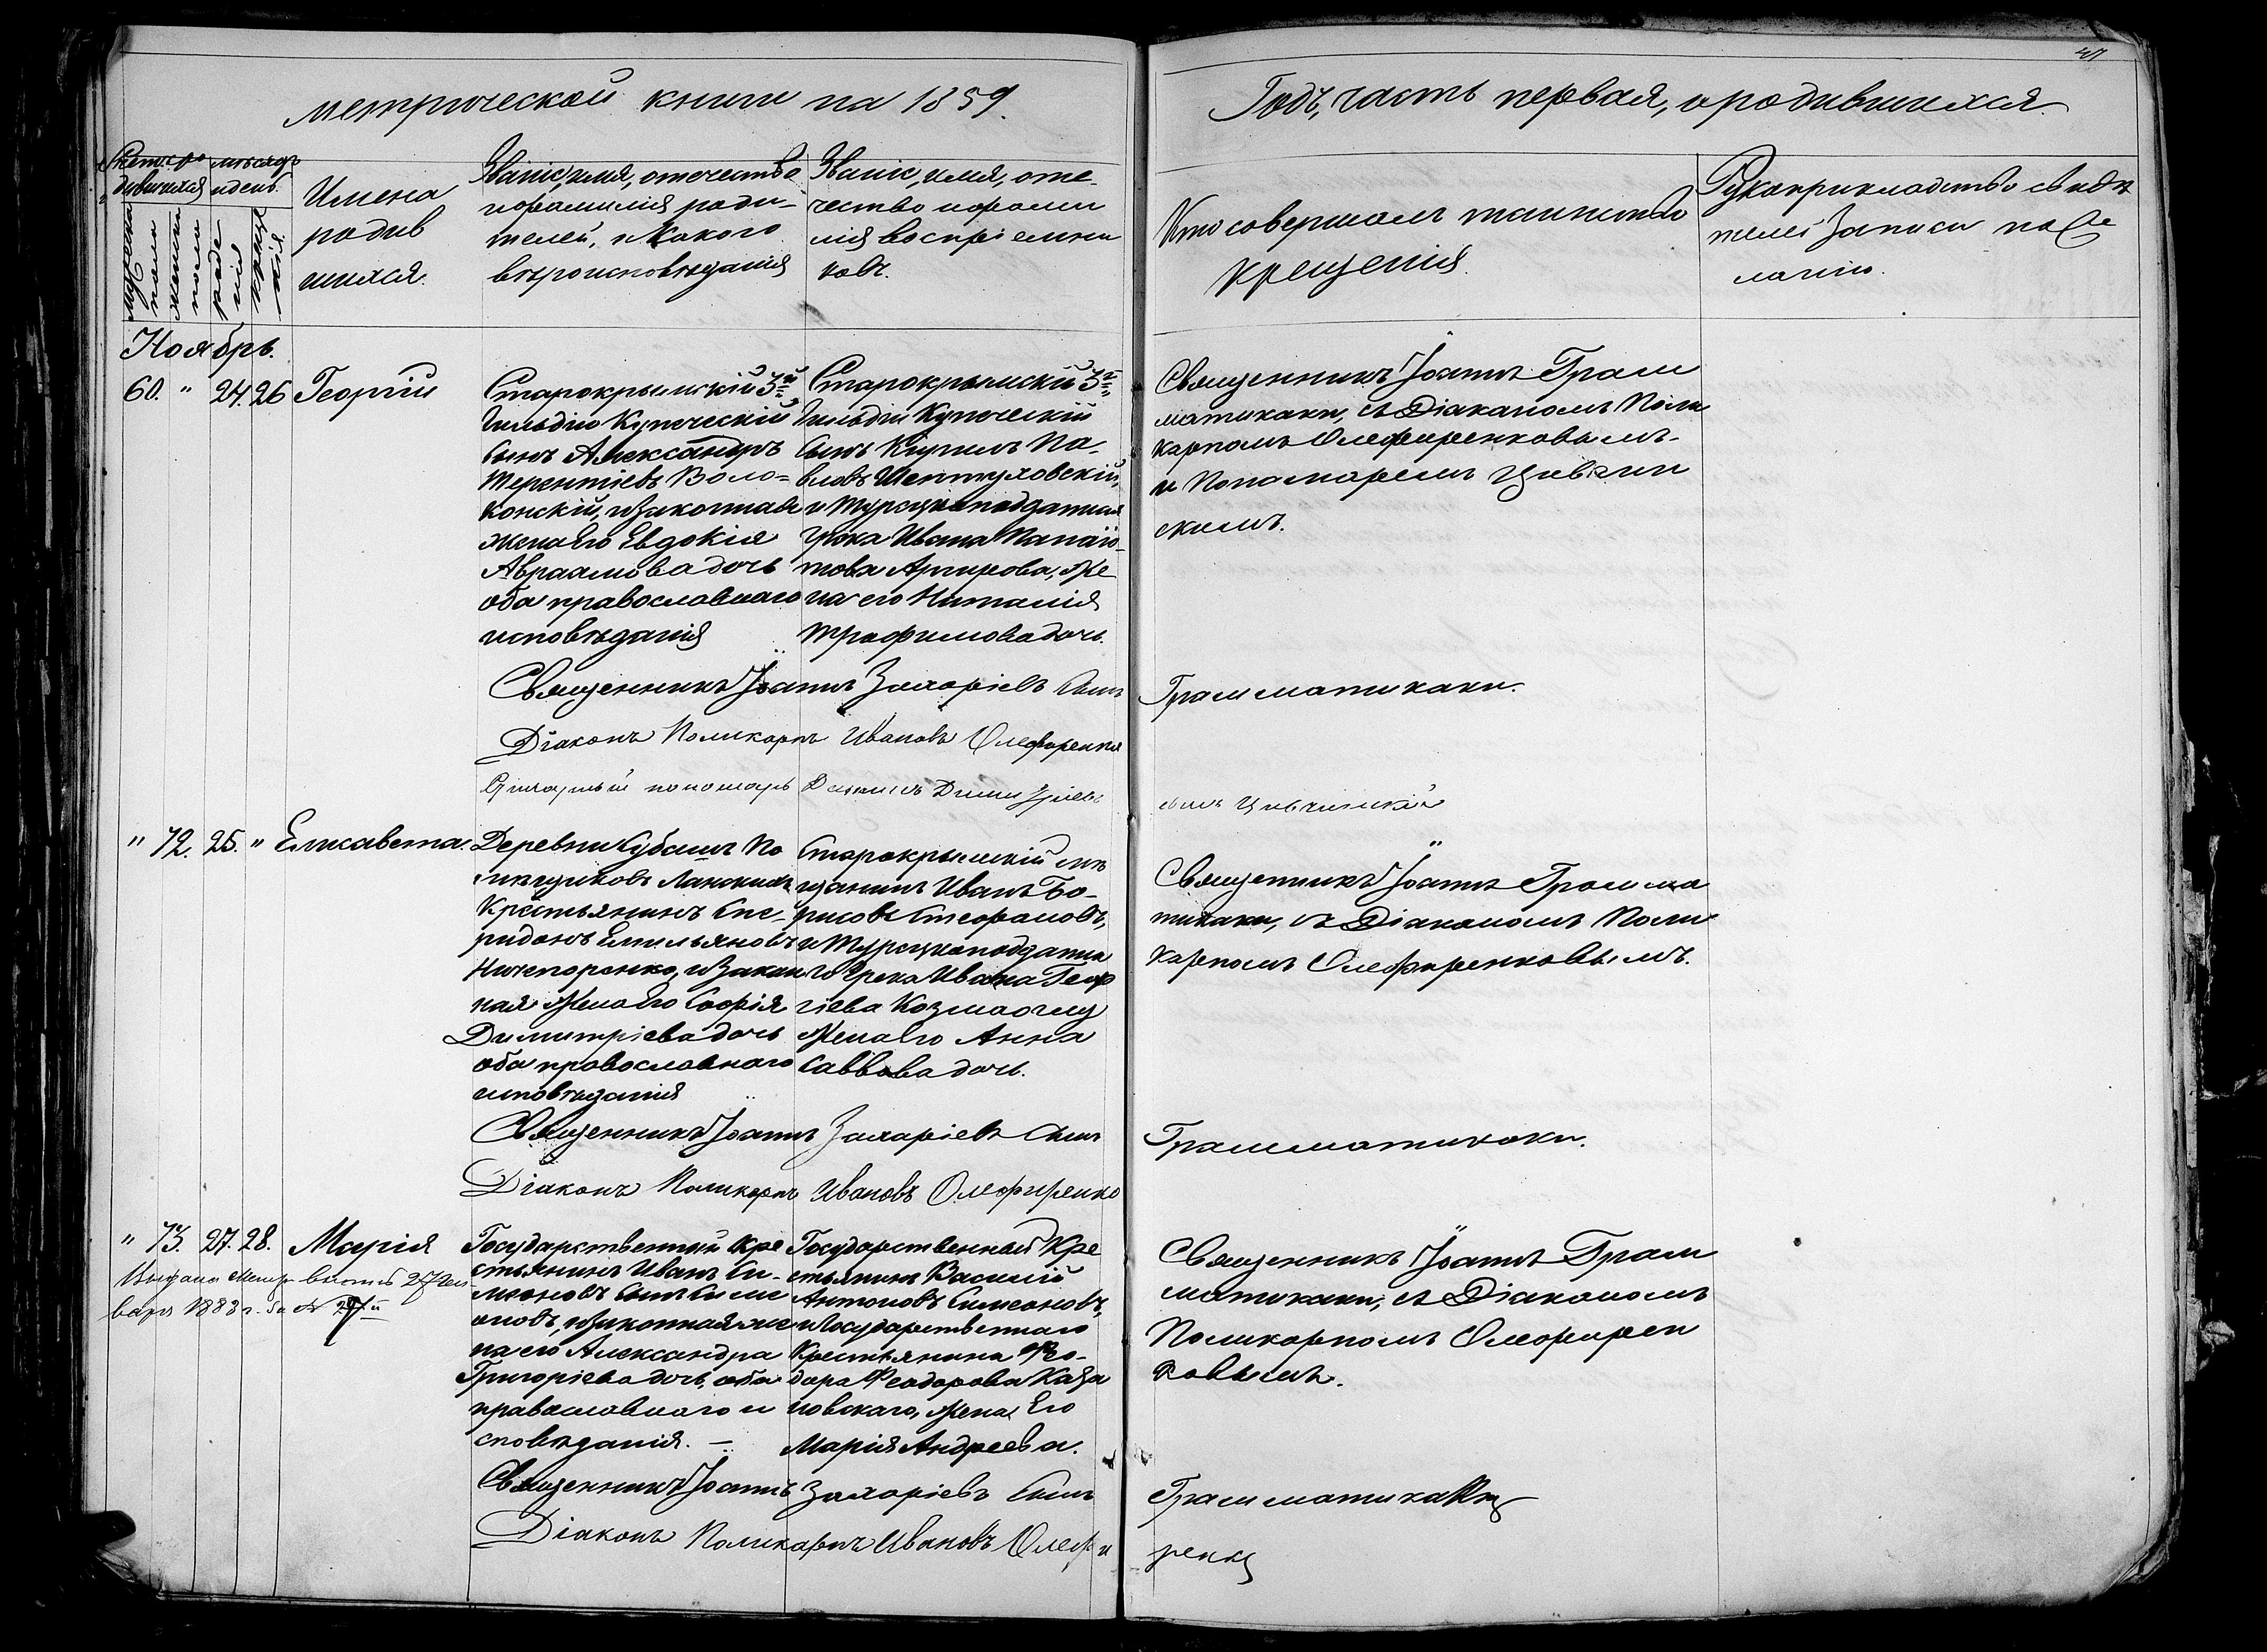 47
метрической книги на 1859.
Годъ, часть первая, о родившихся.
Счетъ ро
дившихся
мѣсяцъ
и день.
Мужеска
пола
Женска
пола
рожде
нія
Креще
нія
Имена
родив
шихся.
Званіе, имя, отечество
и фамилія роди-
телей, и Какого
вѣроисповѣданія
Званіе, имя, оте-
чество и фами
лія воспріемни
ковъ.
Кто совершалъ таинство
крещенія.
Рукоприкладство свидѣ
телей Записи по же
ланію.
Ноябрь.
60. " 24. 26 Георгій
Старокрымскій 3й
Гильдіи Купеческій
сынъ Александръ
Терентіевъ Воло=
конскій, и Законная
жена Его Евдокія
Авраамова дочь
оба православнаго
исповѣданія
Старокрымскій 3й
Гильдіи Купеческій
Сынъ Кирилъ Па-
вловъ Шептуховскій,
и Турецкоподданнаго
Грека Ивана Панаіо-
това Аргирова, Же
на его Наталія
Трофимова дочь.
Священникъ Іоаннъ Грам
матикаки, съ Діакономъ Поли
карпомъ Олефиренковымъ
и Пономаремъ Цивчин
скимъ.
Священникъ Іоаннъ Захаріевъ Сынъ Грамматикаки.
Діаконъ Поликарпъ Ивановъ Олефиренко
пономарь Даниилъ Димитріевъ сынъ Цивчинскій
" 72. 25. " Елисавета.
Деревни Кубашъ По
мѣщиковъ Ланскихъ
Крестьянинъ Спи-
ридонъ Емильяновъ
Ничепоренко, и Закон
ная Жена Его Софія
Димитріева дочь
оба православнаго
исповѣданія
Старокрымскій мѣ
щанинъ Иванъ Бо-
рисовъ Стефановъ,
и Турецкоподданна
го Грека Ивана Геор
гіева Козмаоглу
Жена Его Анна
Саввова дочь.
Священникъ Іоаннъ Грамма
тикаки, съ Діакономъ Поли
карпомъ Олефиренковымъ.
Священникъ Іоаннъ Захаріевъ Сынъ Грамматикаки.
Діаконъ Поликарпъ Ивановъ Олефиренко
" 73. 27. 28. Марія
Выдана Метр. выпись 27 Ген
варя 1883 г. за №
Государственный Кре
стьянинъ Иванъ Си-
меоновъ Сынъ Симе
оновъ, и Законная же
на его Александра
Григоріева дочь, оба
православнаго и
сповѣданія. —
Государственный Кре
стьянинъ Василій
Антоновъ Симеоновъ,
и Государственнаго
Крестьянина Фео-
дора Феодорова Каза
новскаго, Жена Его
Марія Андреева.
Священникъ Іоаннъ Грам
матикаки, съ Діакономъ
Поликарпомъ Олефирен
ковымъ.
Священникъ Іоаннъ Захаріевъ Сынъ Грамматикаки
Діаконъ Поликарпъ Ивановъ Олефи ренко